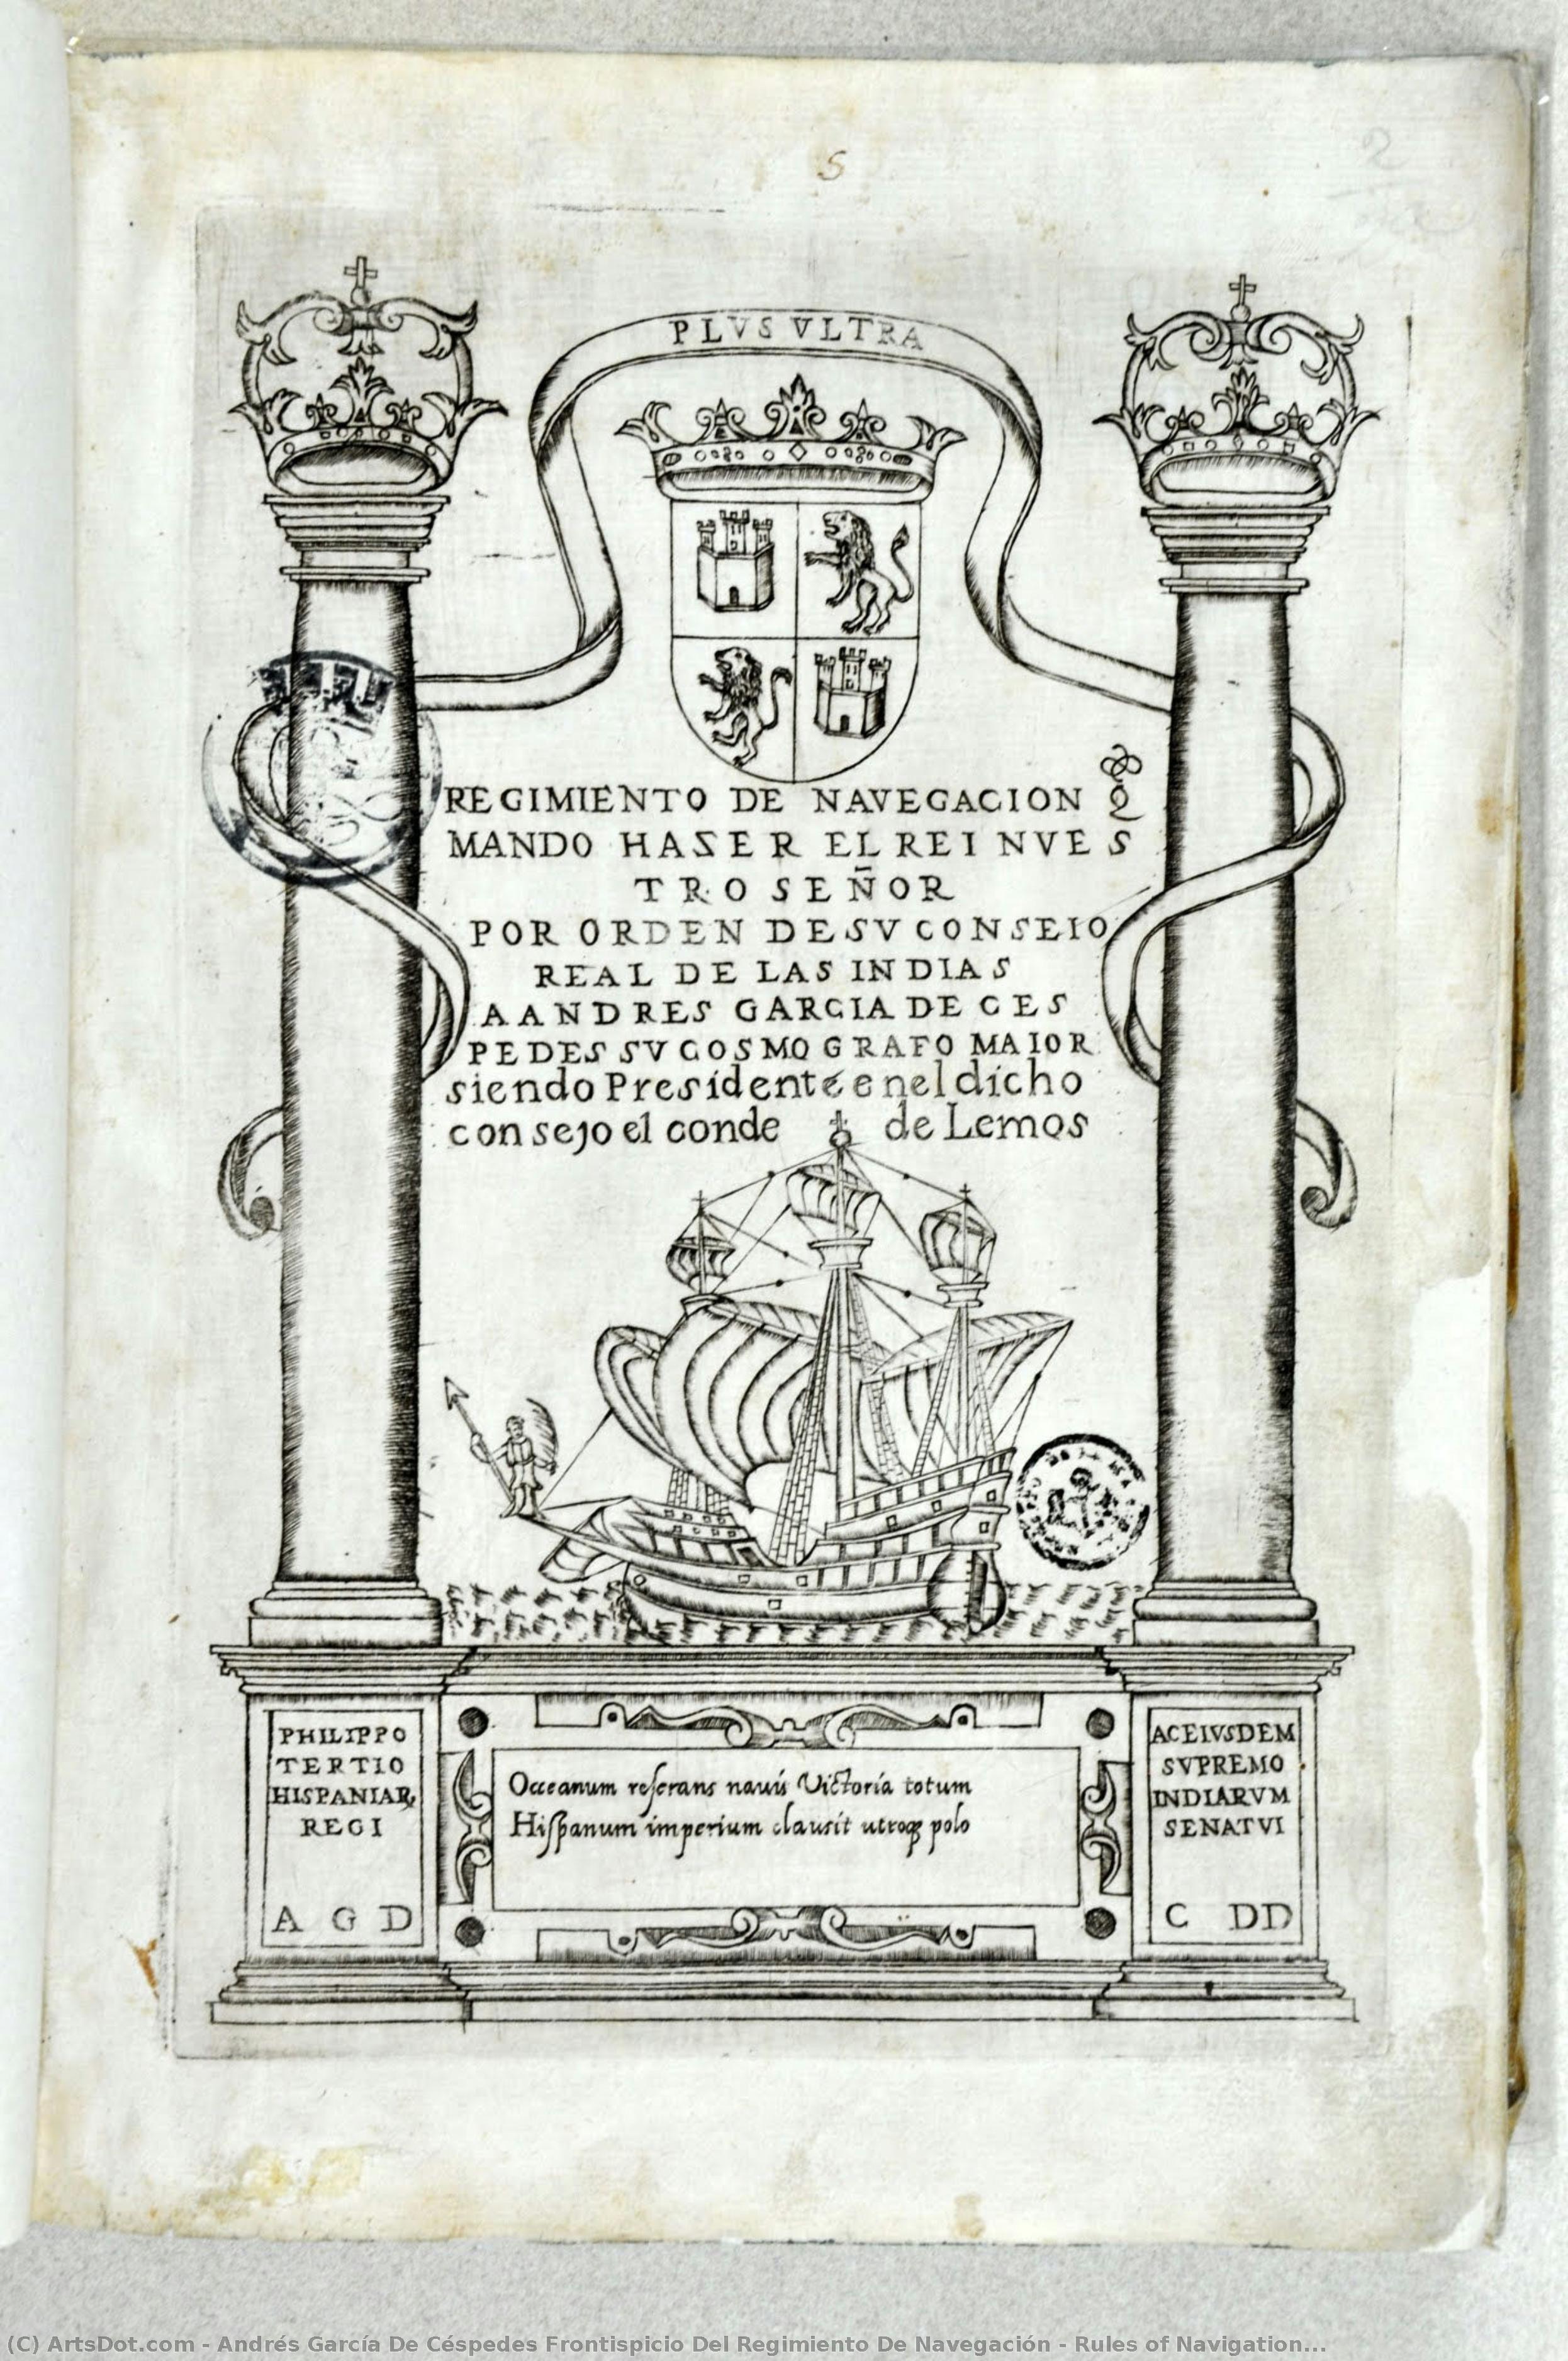 S
2
PLVS VLTRA
REGIMIENTO DE NAVEGACION Q
MANDO HAZER EL REI NVES
TRO SEÑOR
POR ORDEN DE SV CONSEIO
REAL DE LAS INDIAS
A ANDRES GARCIA DE CES
PEDES SV COSMOGRAFO MAIOR
siendo Presidente en el dicho
consejo el conde de Lemos
PHILIPPO
TERTIO
HISPANIAR,
REGI
A G D
Occeanum reserans navis Victoria totum
Hispanum imperium clausit utroq; polo
AC EIVSDEM
SVPREMO
INDIARVM
SENATVI
C DD
(C) ArtsDot.com - Andrés García De Céspedes Frontispicio Del Regimiento De Navegación - Rules of Navigation...